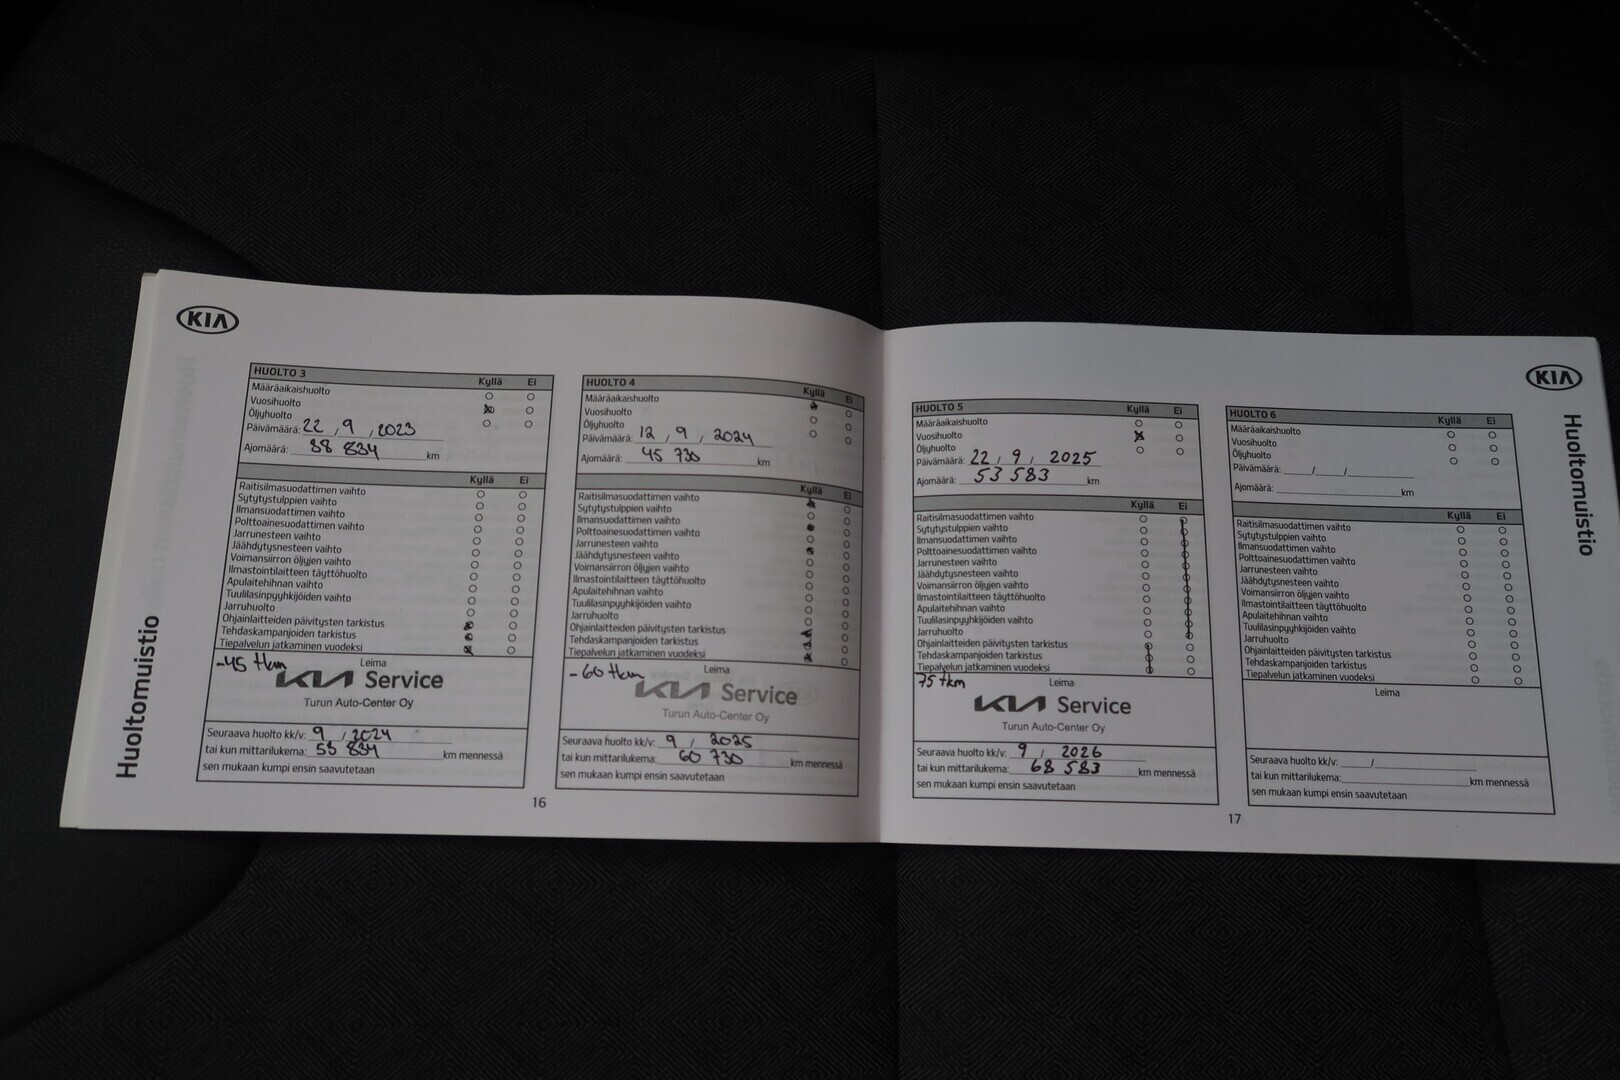 KIA
Huoltomuistio
HUOLTO 3 Kyllä Ei
Määräaikaishuolto
Vuosihuolto
Öljyhuolto
Päivämäärä: 22 , 9 , 2023
Ajomäärä: 38 834 km
Kyllä Ei
Raitisilmasuodattimen vaihto
Sytytystulppien vaihto
Ilmansuodattimen vaihto
Polttoainesuodattimen vaihto
Jarrunesteen vaihto
Jäähdytysnesteen vaihto
Voimansiirron öljyjen vaihto
Ilmastointilaitteen täyttöhuolto
Apulaitehihnan vaihto
Tuulilasinpyyhkijöiden vaihto
Jarruhuolto
Ohjainlaitteiden päivitysten tarkistus
Tehdaskampanjoiden tarkistus
Tiepalvelun jatkaminen vuodeksi
-45 tkm Leima
KIA Service
Turun Auto-Center Oy
Seuraava huolto kk/v: 9 , 2024
tai kun mittarilukema: 53 834 km mennessä
sen mukaan kumpi ensin saavutetaan
HUOLTO 4 Kyllä Ei
Määräaikaishuolto
Vuosihuolto
Öljyhuolto
Päivämäärä: 12 , 9 , 2024
Ajomäärä: 45 730 km
Kyllä Ei
Raitisilmasuodattimen vaihto
Sytytystulppien vaihto
Ilmansuodattimen vaihto
Polttoainesuodattimen vaihto
Jarrunesteen vaihto
Jäähdytysnesteen vaihto
Voimansiirron öljyjen vaihto
Ilmastointilaitteen täyttöhuolto
Apulaitehihnan vaihto
Tuulilasinpyyhkijöiden vaihto
Jarruhuolto
Ohjainlaitteiden päivitysten tarkistus
Tehdaskampanjoiden tarkistus
Tiepalvelun jatkaminen vuodeksi
-60 tkm Leima
KIA Service
Turun Auto-Center Oy
Seuraava huolto kk/v: 9 , 2025
tai kun mittarilukema: 60 730 km mennessä
sen mukaan kumpi ensin saavutetaan
16
HUOLTO 5 Kyllä Ei
Määräaikaishuolto
Vuosihuolto
Öljyhuolto
Päivämäärä: 22 , 9 , 2025
Ajomäärä: 53 583 km
Kyllä Ei
Raitisilmasuodattimen vaihto
Sytytystulppien vaihto
Ilmansuodattimen vaihto
Polttoainesuodattimen vaihto
Jarrunesteen vaihto
Jäähdytysnesteen vaihto
Voimansiirron öljyjen vaihto
Ilmastointilaitteen täyttöhuolto
Apulaitehihnan vaihto
Tuulilasinpyyhkijöiden vaihto
Jarruhuolto
Ohjainlaitteiden päivitysten tarkistus
Tehdaskampanjoiden tarkistus
Tiepalvelun jatkaminen vuodeksi
75 tkm Leima
KIA Service
Turun Auto-Center Oy
Seuraava huolto kk/v: 9 , 2026
tai kun mittarilukema: 68 583 km mennessä
sen mukaan kumpi ensin saavutetaan
HUOLTO 6 Kyllä Ei
Määräaikaishuolto
Vuosihuolto
Öljyhuolto
Päivämäärä: / /
Ajomäärä: km
Kyllä Ei
Raitisilmasuodattimen vaihto
Sytytystulppien vaihto
Ilmansuodattimen vaihto
Polttoainesuodattimen vaihto
Jarrunesteen vaihto
Jäähdytysnesteen vaihto
Voimansiirron öljyjen vaihto
Ilmastointilaitteen täyttöhuolto
Apulaitehihnan vaihto
Tuulilasinpyyhkijöiden vaihto
Jarruhuolto
Ohjainlaitteiden päivitysten tarkistus
Tehdaskampanjoiden tarkistus
Tiepalvelun jatkaminen vuodeksi
Leima
Seuraava huolto kk/v: /
tai kun mittarilukema: km mennessä
sen mukaan kumpi ensin saavutetaan
17
KIA
Huoltomuistio